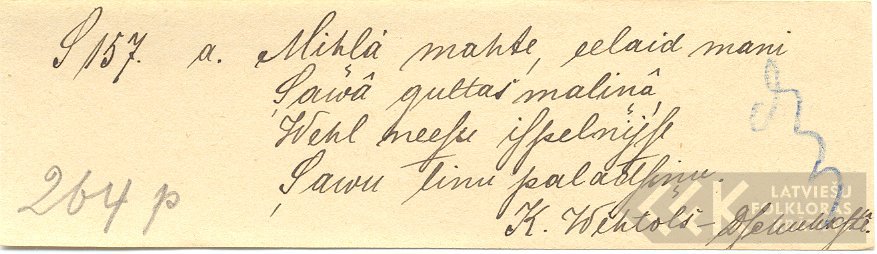 S 157. a. Mihļâ mahte, eelaid mani
Sawâ gultas maliņâ,
Wehl neesu ispelnijse
Sawu linu paladsiņu.
264 p
K. Wihtols -
LATVIEŠU
FOLKLORAS